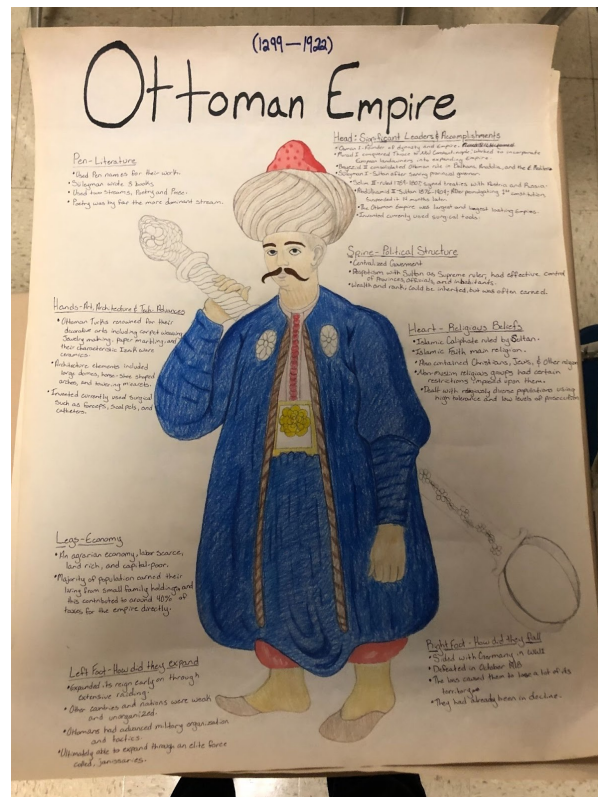 (1299—1922)
Ottoman Empire
Pen-Literature
• Used Pen names for their work.
• Suleyman wrote 3 books
• Used two streams, Poetry and Prose.
• Poetry was by far the more dominant stream.
Head: Significant Leaders & Accomplishments
• Osman I - Founder of dynasty and Empire.
• Murad I conquered Thrace
European landowners into expanding empire
• Bayezid II consolidated Ottoman rule in Balkans, Anatolia, and the E.
• Suleyman I - Sultan after
• Selim III - ruled 1789-1807, signed treaties with Austria and Russia.
• Abdulhamid II - Sultan 1876-1909, After promulgating 1st constitution
suspended it 14 months later.
• The Ottoman Empire was largest and longest lasting Empires.
• Invented currently used surgical tools.
Spine-Political Structure
• Centralized Government
• Despotism with Sultan as Supreme ruler, had effective control
of Provinces, officials, and inhabitants.
• Wealth and rank could be inherited, but was often earned.
Hands-Art, Architecture & Tech. Advances
• Ottoman Turks renowned for their
decorative arts including carpet weaving,
Jewelry making, paper marbling, and
their characteristic Iznik ware
ceramics.
• Architecture elements included
large domes, horse-shoe shaped
arches, and towering minarets.
• Invented currently used surgical
such as forceps, scalpels, and
catheters.
Heart - Religious Beliefs
• Islamic Caliphate ruled by Sultan.
• Islamic Faith main religion.
• Also contained Christians, Jews, & other religion
• Non-Muslim religious groups had certain
restrictions imposed upon them.
• Dealt with religiously diverse populations using
high tolerance and low levels of persecution
Legs-Economy
• An agrarian economy, labor scarce,
land rich, and capital-poor.
• Majority of population earned their
living from small family holdings, and
this contributed to around 40% of
taxes for the empire directly.
Left Foot-How did they expand
• Expanded its reign early on through
extensive raiding.
• Other countries and nations were weak
and unorganized.
• Ottomans had advanced military organization
and tactics.
• Ultimately able to expand through an elite force
called, janissaries.
Right Foot - How did they fall
• Sided with Germany in WWI
• Defeated in October 1918
• The loss caused them to lose a lot of its
territory
• They had already been in decline.